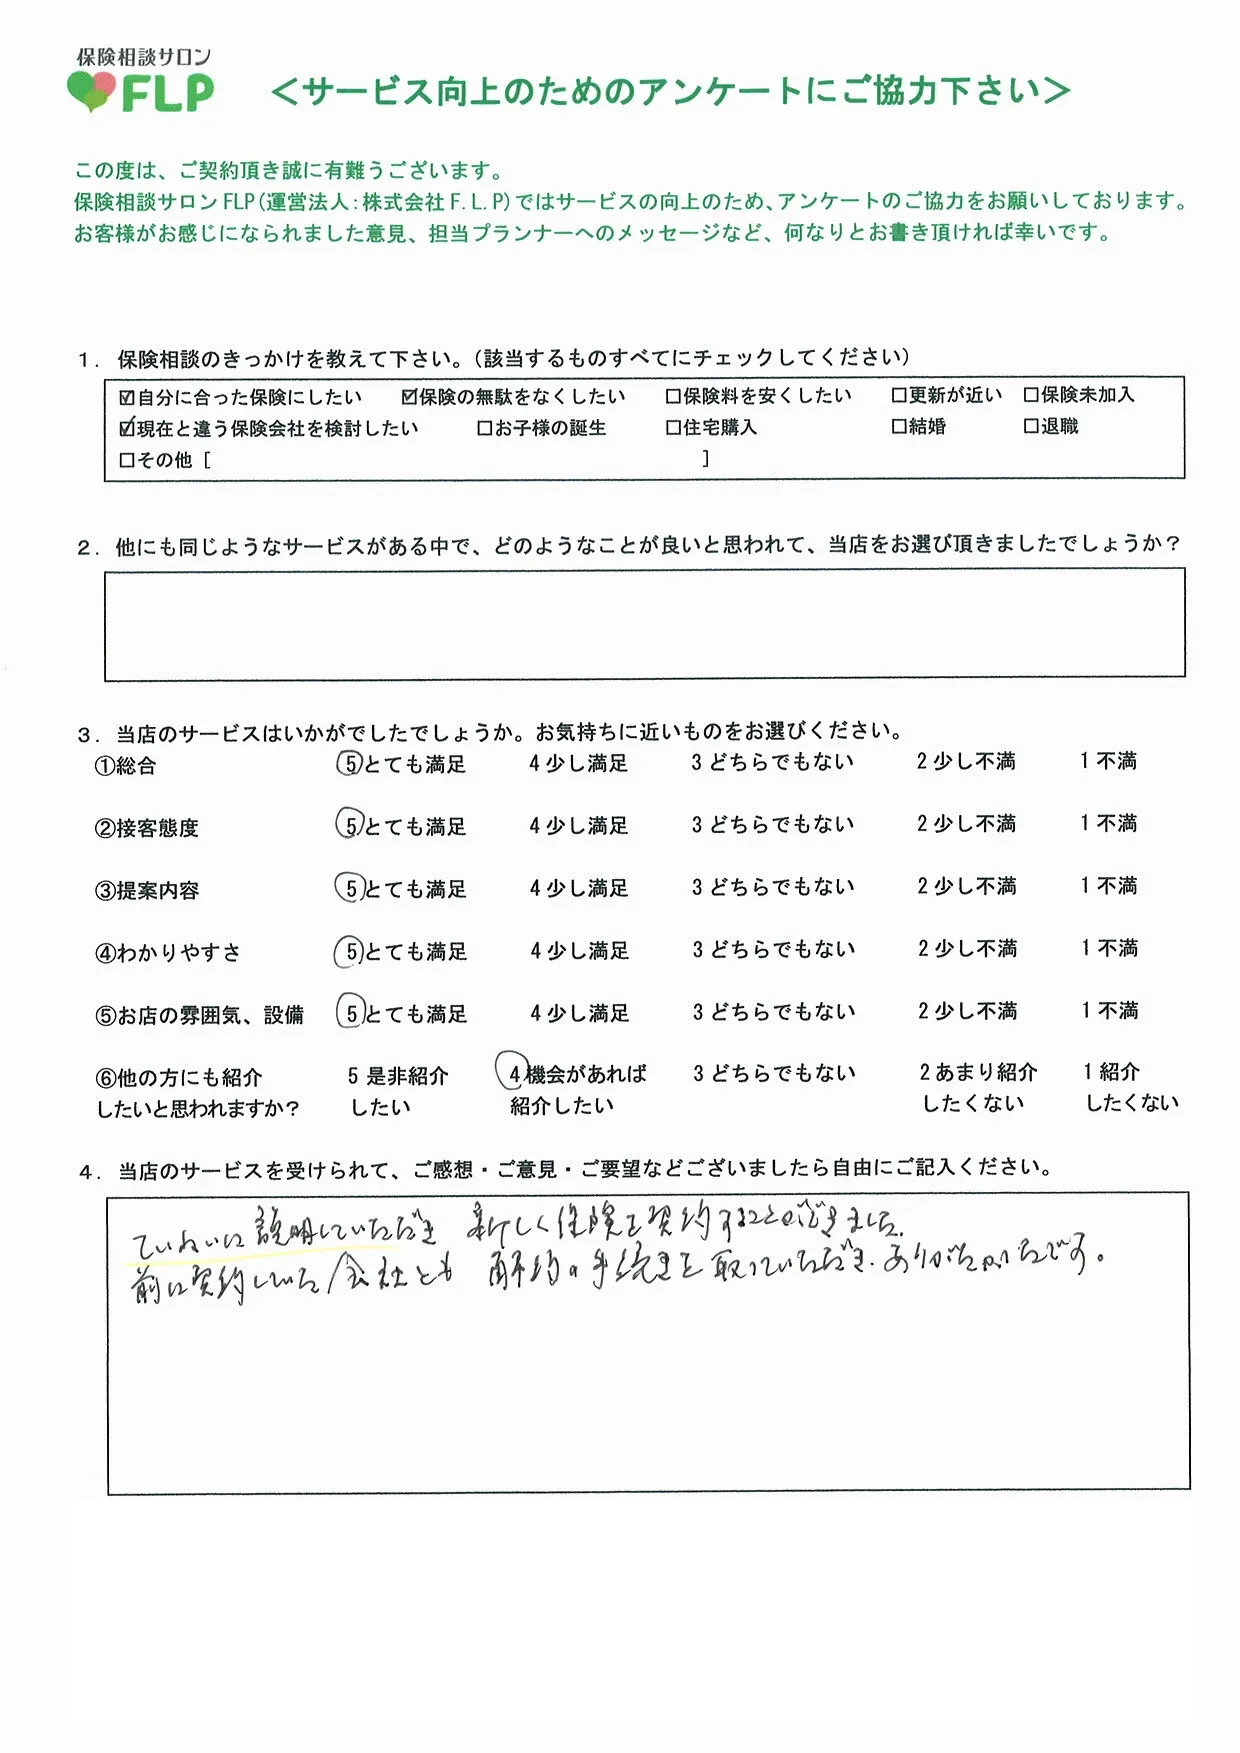 保険相談サロン
FLP
＜サービス向上のためのアンケートにご協力下さい＞
この度は、ご契約頂き誠に有難うございます。
保険相談サロンFLP(運営法人:株式会社F.L.P)ではサービスの向上のため、アンケートのご協力をお願いしております。
お客様がお感じになられました意見、担当プランナーへのメッセージなど、何なりとお書き頂ければ幸いです。
1. 保険相談のきっかけを教えて下さい。(該当するものすべてにチェックしてください)
☑自分に合った保険にしたい ☑保険の無駄をなくしたい □保険料を安くしたい □更新が近い □保険未加入
☑現在と違う保険会社を検討したい □お子様の誕生 □住宅購入 □結婚 □退職
□その他 [ ]
2. 他にも同じようなサービスがある中で、どのようなことが良いと思われて、当店をお選び頂きましたでしょうか？
3. 当店のサービスはいかがでしたでしょうか。お気持ちに近いものをお選びください。
①総合 5とても満足 4少し満足 3どちらでもない 2少し不満 1不満
②接客態度 5とても満足 4少し満足 3どちらでもない 2少し不満 1不満
③提案内容 5とても満足 4少し満足 3どちらでもない 2少し不満 1不満
④わかりやすさ 5とても満足 4少し満足 3どちらでもない 2少し不満 1不満
⑤お店の雰囲気、設備 5とても満足 4少し満足 3どちらでもない 2少し不満 1不満
⑥他の方にも紹介 5是非紹介 4機会があれば 3どちらでもない 2あまり紹介 1紹介
したいと思われますか？ したい 紹介したい したくない したくない
4. 当店のサービスを受けられて、ご感想・ご意見・ご要望などございましたら自由にご記入ください。
ていねいに説明していただき 新しく保険を契約することができました.
前に契約していた会社とも 解約の手続きを取っていただき.ありがたかったです。